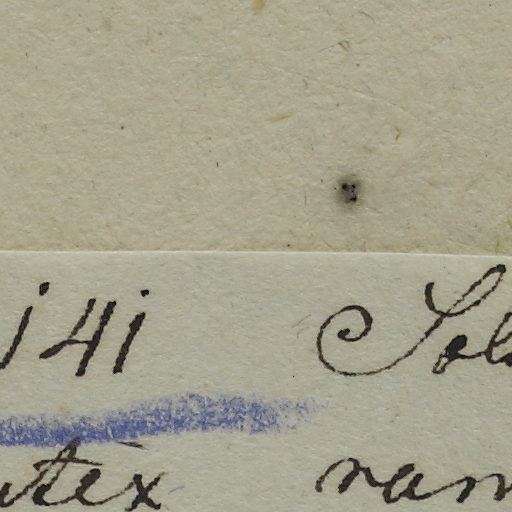 141 Sol
utex ram